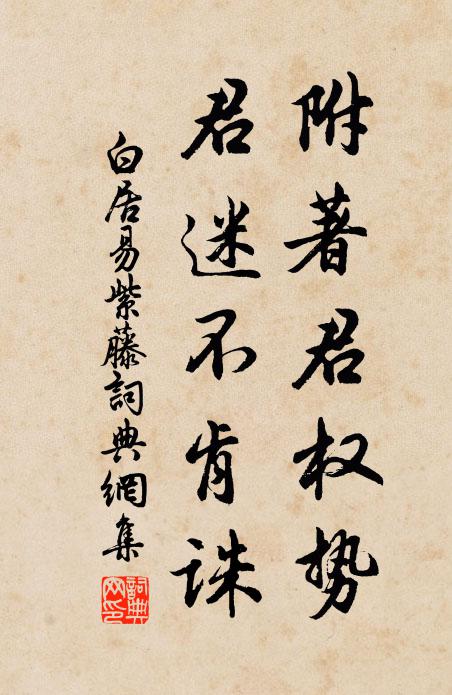 附著君权势
君迷不肯诛
白居易紫藤詞典網集
詞典網印